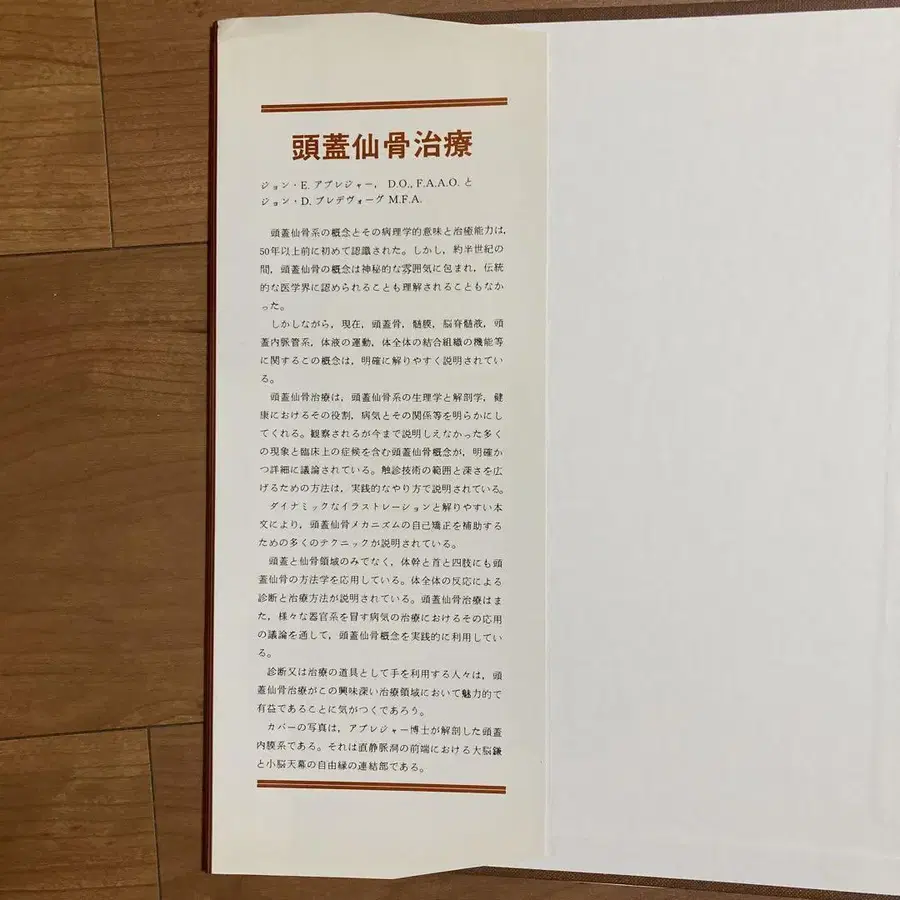 頭蓋仙骨治療
ジョン・E. アプレジャー, D.O., F.A.A.O. と
ジョン・D. ブレデヴォーグ M.F.A.
頭蓋仙骨系の概念とその病理学的意味と治癒能力は,
50年以上前に初めて認識された。しかし, 約半世紀の
間, 頭蓋仙骨の概念は神秘的な雰囲気に包まれ, 伝統
的な医学界に認められることも理解されることもなか
った。
しかしながら, 現在, 頭蓋骨, 髄膜, 脳脊髄液, 頭
蓋内脈管系, 体液の運動, 体全体の結合組織の機能等
に関するこの概念は, 明確に解りやすく説明されてい
る。
頭蓋仙骨治療は, 頭蓋仙骨系の生理学と解剖学, 健
康におけるその役割, 病気とその関係等を明らかにし
てくれる。観察されるが今まで説明しえなかった多く
の現象と臨床上の症候を含む頭蓋仙骨概念が, 明確か
つ詳細に議論されている。触診技術の範囲と深さを広
げるための方法は, 実践的なやり方で説明されている。
ダイナミックなイラストレーションと解りやすい本
文により, 頭蓋仙骨メカニズムの自己矯正を補助する
ための多くのテクニックが説明されている。
頭蓋と仙骨領域のみでなく, 体幹と首と四肢にも頭
蓋仙骨の方法学を応用している。体全体の反応による
診断と治療方法が説明されている。頭蓋仙骨治療はま
た, 様々な器官系を冒す病気の治療におけるその応用
の議論を通して, 頭蓋仙骨概念を実践的に利用してい
る。
診断又は治療の道具として手を利用する人々は, 頭
蓋仙骨治療がこの興味深い治療領域において魅力的で
有益であることに気がつくであろう。
カバーの写真は, アプレジャー博士が解剖した頭蓋
内膜系である。それは直静脈洞の前端における大脳鎌
と小脳天幕の自由縁の連結部である。